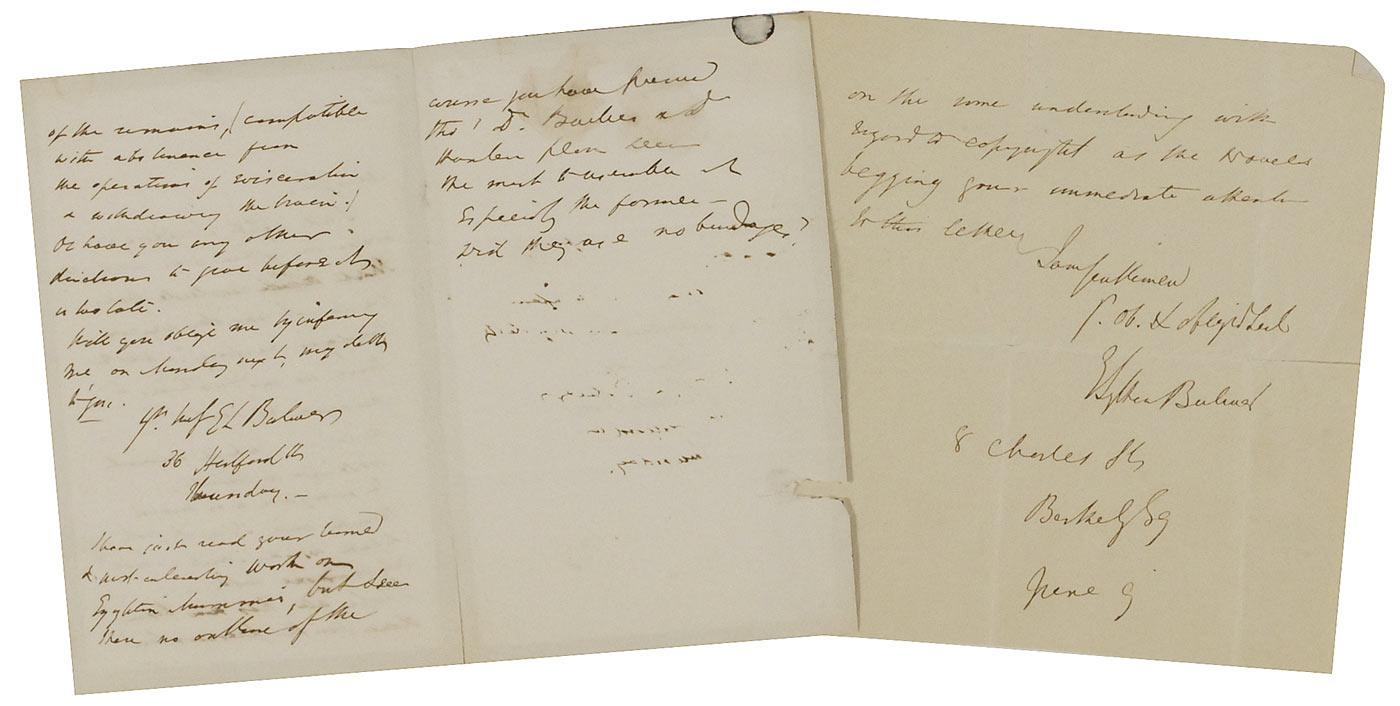 of the remains, (compatible
with abstinence from
the operations of evisceration
& withdrawing the brain.)
Or have you any other
directions to give before it
is too late.
Will you oblige me by informing
me on Monday next, my debt
to you.
yrs truly E L Bulwer
36 Hertford St
Thursday. —
I have just read your learned
& most interesting work on
Egyptian Mummies, but I see
there no outline of the
course you have pursued
tho' Dr. Baillie's and
Hunter's plan seem
the most desirable
Especially the former —
Did they use no bandages?
on the same understanding with
regard to copyright as the Novels
begging your immediate attention
to this letter
I am Gentlemen
Y. ob. & obliged Servt
E Lytton Bulwer
8 Charles St
Berkeley Sq
June 9